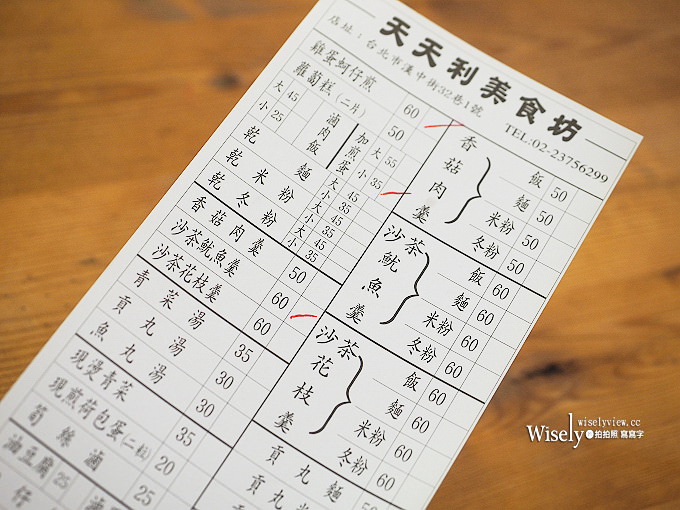 天天利美食坊
店址:台北市漢中街32巷1號
TEL:02-23756299
雞蛋蚵仔煎 60
蘿蔔糕(二片) 50
滷肉飯 大 45 小 25
加煎蛋 大 55 小 35
乾麵 大 45 小 35
乾米粉 大 45 小 35
乾冬粉 大 45 小 35
香菇肉羹 50
沙茶魷魚羹 60
沙茶花枝羹 60
青菜湯 35
貢丸湯 30
魚丸湯 30
現燙青菜 35
現煎荷包蛋(二粒) 20
滷 25
油豆腐 25
仔
香菇肉羹
飯 50
麵 50
米粉 50
冬粉 50
沙茶魷魚羹
飯 60
麵 60
米粉 60
冬粉 60
沙茶花枝羹
飯 60
麵 60
米粉 60
冬粉 60
貢丸麵 50
貢丸
wiselyview.cc
Wisely 拍拍照 寫寫字